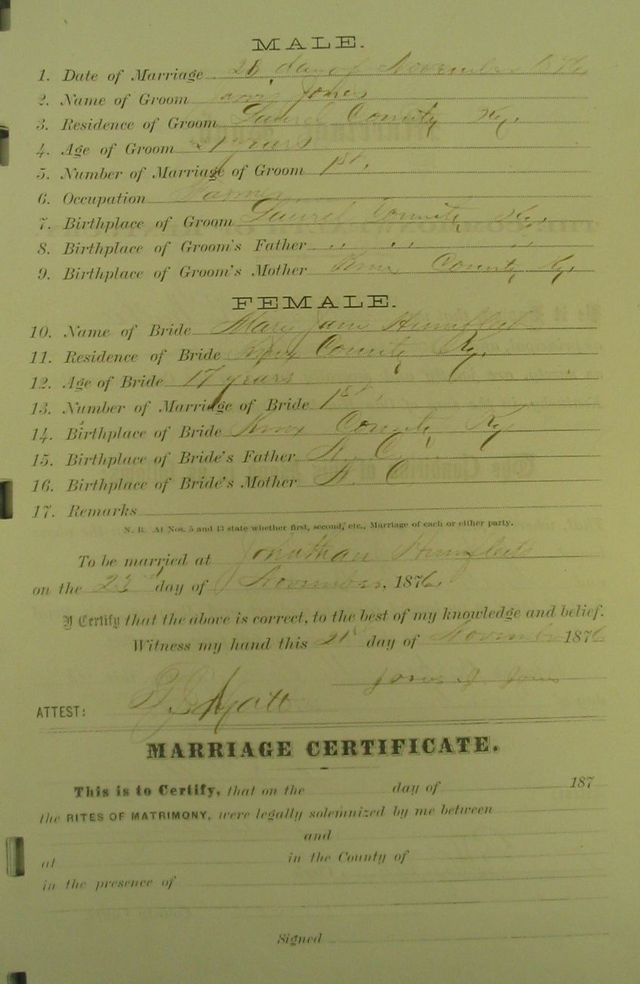 MALE.
1. Date of Marriage day of November 1876
2. Name of Groom Jones
3. Residence of Groom Laurel County Ky.
4. Age of Groom 21 years
5. Number of Marriage of Groom 1st.
6. Occupation Farmer
7. Birthplace of Groom Laurel County Ky.
8. Birthplace of Groom's Father " " "
9. Birthplace of Groom's Mother Knox County Ky
FEMALE.
10. Name of Bride Mary Jane Humfleet
11. Residence of Bride Knox County Ky.
12. Age of Bride 17 years
13. Number of Marriage of Bride 1st.
14. Birthplace of Bride Knox County Ky
15. Birthplace of Bride's Father N. C.
16. Birthplace of Bride's Mother N. C
17. Remarks
N. B. At Nos. 5 and 13 state whether first, second, etc., Marriage of each or either party.
To be married at Jonathan Humfleets
on the 23rd day of November, 1876.
I Certify that the above is correct, to the best of my knowledge and belief.
Witness my hand this 21st day of November 1876
Jones
ATTEST:
MARRIAGE CERTIFICATE.
This is to Certify, that on the day of 187
the RITES OF MATRIMONY, were legally solemnized by me between
and
at in the County of
in the presence of
Signed